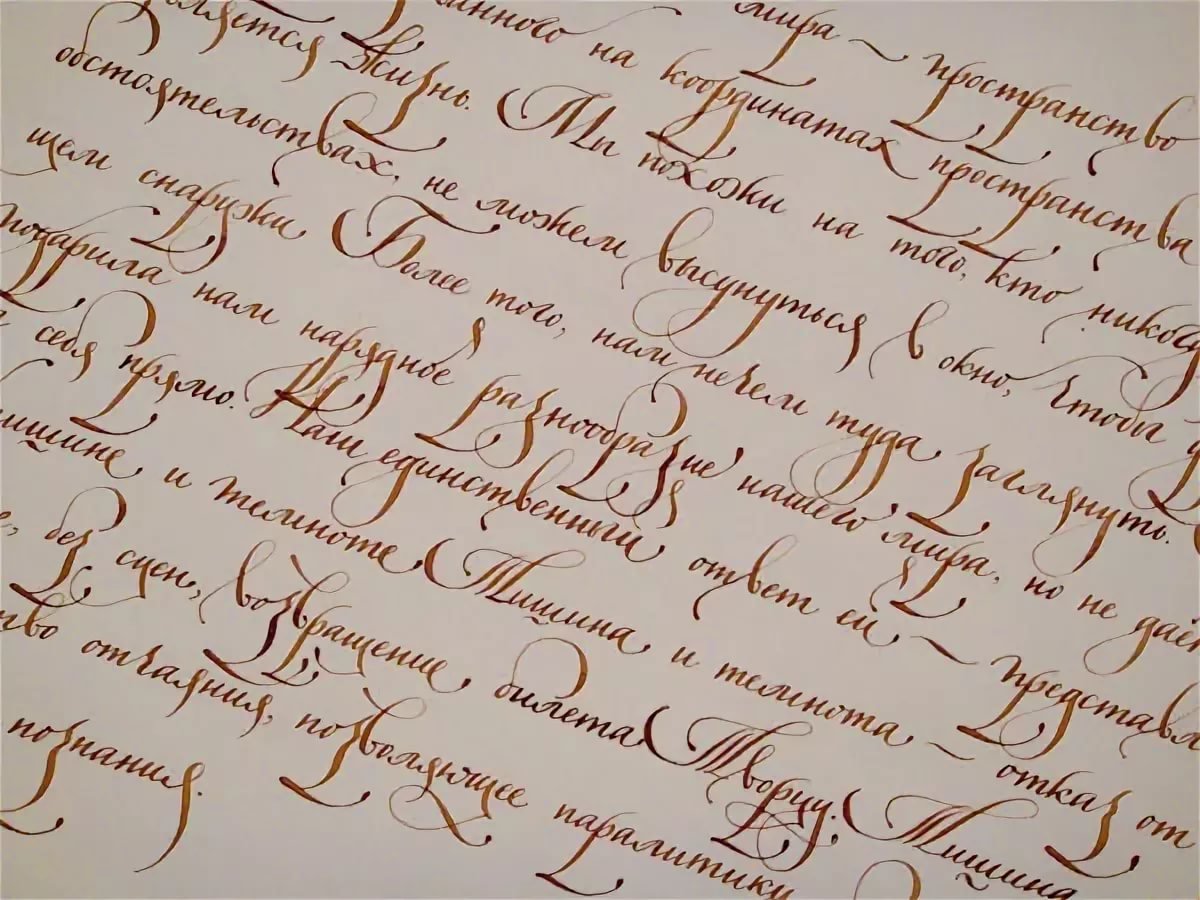 мира — пространство
анного на координатах пространства
вляется Жизнь. Мы похожи на того, кто никогд
обстоятельствах, не можем высунуться в окно, чтобы у
щем снаружи. Более того, нам нечем туда заглянуть.
подарила нам нарядное разнообразие нашего мира, но не даёт
себя прямо. Наш единственный ответ ей — представл
ишине и темноте. Тишина и темнота — отказ от
е, без сцен, возвращение билета Творцу. Тишина
тво отчаяния, позволяющее паралитику
познания.